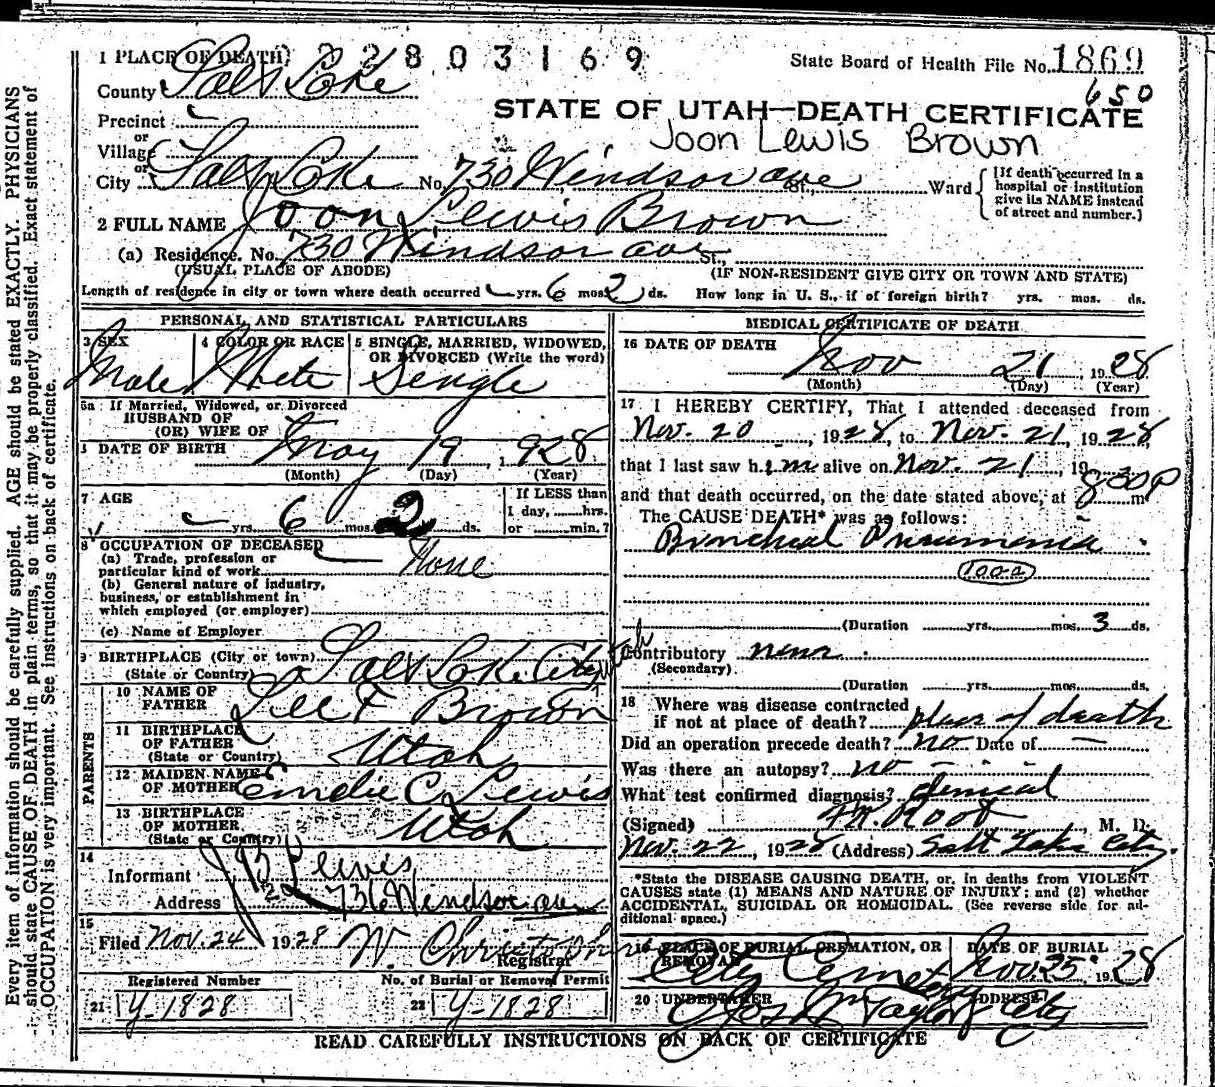 1 PLACE OF DEATH 2 2 8 0 3 1 6 9
State Board of Health File No. 1869
650
County Salt Lake
STATE OF UTAH—DEATH CERTIFICATE
Joon Lewis Brown
Precinct
or
Village
or
City Salt Lake No. 730 Windsor ave St., Ward
[If death occurred in a hospital or institution give its NAME instead of street and number.]
2 FULL NAME Joon Lewis Brown
(a) Residence. No. 730 Windsor ave St.,
(USUAL PLACE OF ABODE) (IF NON-RESIDENT GIVE CITY OR TOWN AND STATE)
Length of residence in city or town where death occurred yrs. 6 mos. 2 ds. How long in U. S., if of foreign birth? yrs. mos. ds.
PERSONAL AND STATISTICAL PARTICULARS
3 SEX 4 COLOR OR RACE 5 SINGLE, MARRIED, WIDOWED,
OR DIVORCED (Write the word)
Male White Single
5a If Married, Widowed, or Divorced
HUSBAND OF
(OR) WIFE OF
DATE OF BIRTH May 19, 1928
(Month) (Day) (Year)
7 AGE
yrs. 6 mos. 2 ds.
If LESS than
1 day, hrs.
or min.?
8 OCCUPATION OF DECEASED
(a) Trade, profession or
particular kind of work None
(b) General nature of industry,
business, or establishment in
which employed (or employer)
(c) Name of Employer
9 BIRTHPLACE (City or town) Salt Lake City Utah
(State or Country)
PARENTS
10 NAME OF
FATHER Lee F Brown
11 BIRTHPLACE
OF FATHER Utah
(State or Country)
12 MAIDEN NAME
OF MOTHER Emelie C Lewis
13 BIRTHPLACE
OF MOTHER Utah
(State or Country)
14
Informant J B Lewis
Address 736 Windsor ave
15
Filed Nov. 24 1928 W. Christopherson
Registrar
Registered Number No. of Burial or Removal Permit
21 Y-1828 22 Y-1828
MEDICAL CERTIFICATE OF DEATH
16 DATE OF DEATH
Nov 21, 1928
(Month) (Day) (Year)
17 I HEREBY CERTIFY, That I attended deceased from
Nov. 20, 1928, to Nov. 21, 1928
that I last saw him alive on Nov. 21, 19
and that death occurred, on the date stated above, at 8 30 P m
The CAUSE DEATH* was as follows:
Bronchial Pneumonia
100a
(Duration yrs. mos. 3 ds.
Contributory none
(Secondary)
(Duration yrs. mos. ds.
18 Where was disease contracted
if not at place of death? place of death
Did an operation precede death? no Date of —
Was there an autopsy? no
What test confirmed diagnosis? clinical
(Signed) F.R. Root M. D.
Nov. 22, 1928 (Address) Salt Lake City.
*State the DISEASE CAUSING DEATH, or, in deaths from VIOLENT
CAUSES state (1) MEANS AND NATURE OF INJURY; and (2) whether
ACCIDENTAL, SUICIDAL OR HOMICIDAL. (See reverse side for ad-
ditional space.)
19 PLACE OF BURIAL, CREMATION, OR
REMOVAL
City Cemetery
DATE OF BURIAL
Nov. 25 1928
20 UNDERTAKER ADDRESS
Jos Wm Taylor City
READ CAREFULLY INSTRUCTIONS ON BACK OF CERTIFICATE
Every item of information should be carefully supplied. AGE should be stated EXACTLY. PHYSICIANS
should state CAUSE OF DEATH in plain terms, so that it may be properly classified. Exact statement of
OCCUPATION is very important. See instructions on back of certificate.